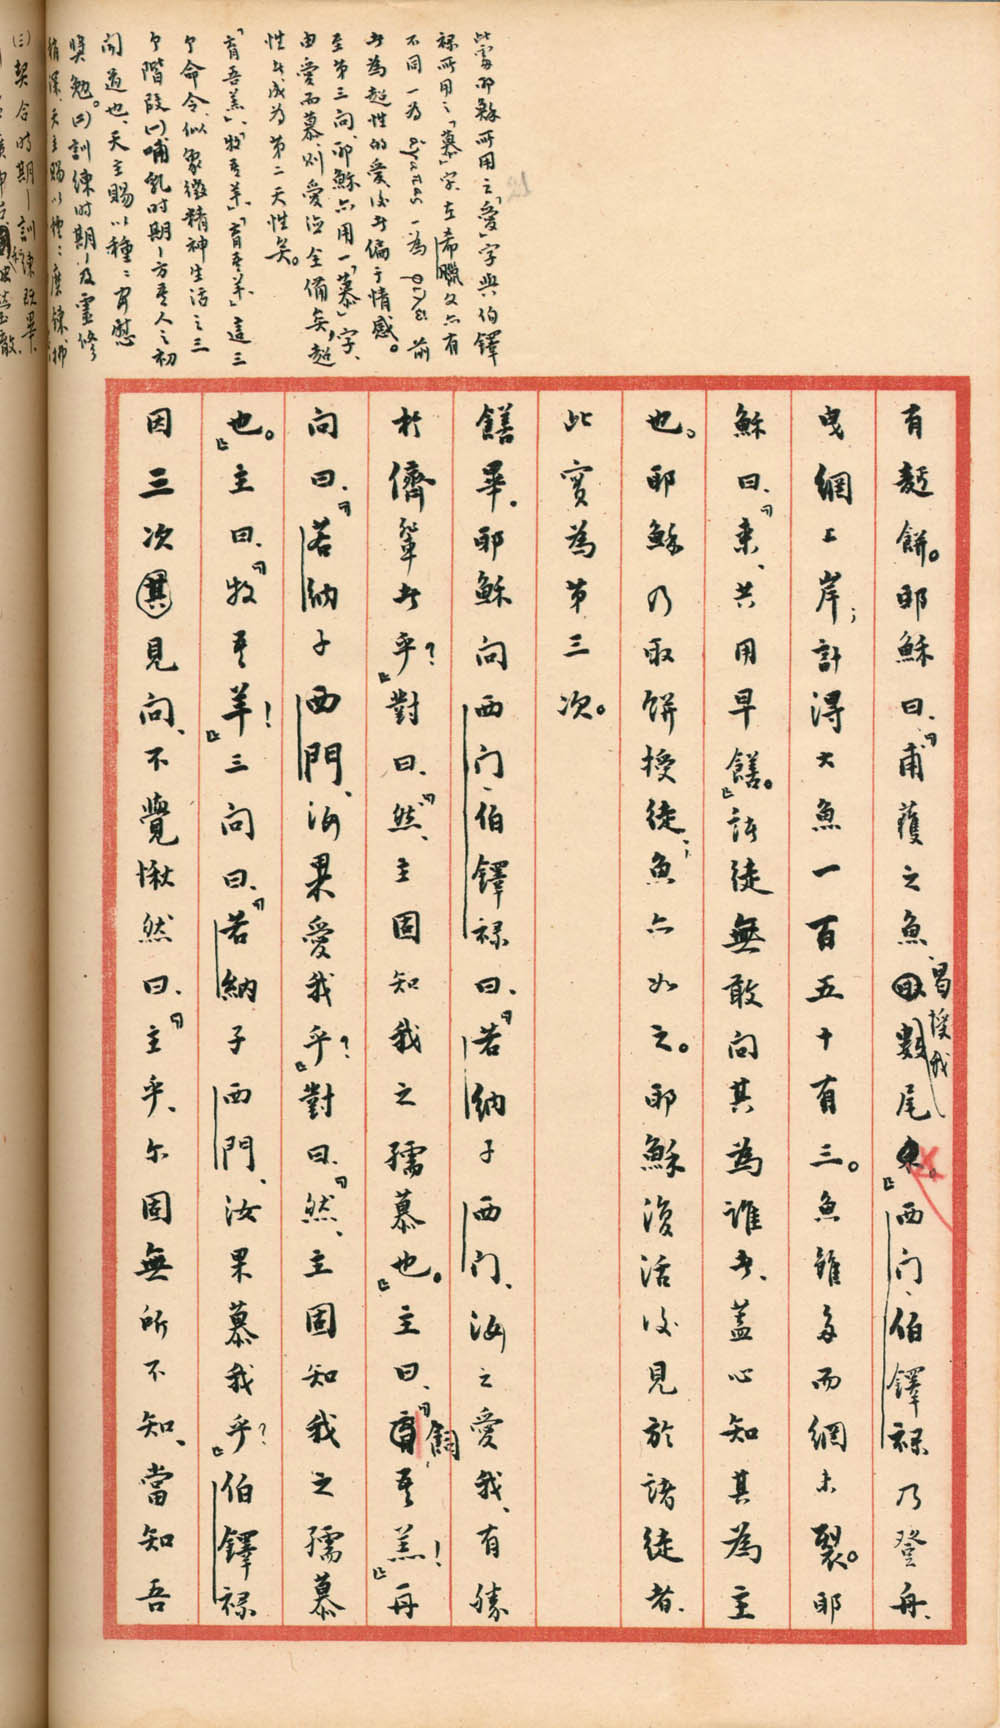 此處耶穌所用之「愛」字與伯鐸
祿所用之「慕」字、在希臘文亦有
不同一為 一為 前
者為超性的愛後者偏于情感。
至第三问、耶穌亦用一「慕」字、
由愛而慕、則愛全備矣、超
性者成為第二天性矣。
「育吾羔」、「牧吾羊」、「育吾羊」這三
个命令、似象徵精神生活之三
个階段(一)哺乳時期—方吾人之初
聞道也、天主賜以種〻安慰
獎勉。(二)訓練時期—及靈修
稍深、天主賜以種〻磨鍊
(三)契合時期—訓練既畢、
有麵餅。耶穌曰、「甫獲之魚、曷授我數尾。」西门、伯鐸祿乃登舟、
曳網上岸；計得大魚一百五十有三。魚雖多而網未裂。耶
穌曰、「來、共用早饍。」諸徒無敢问其為誰者、蓋心知其為主
也。耶穌乃取餅授徒；魚亦如之。耶穌復活後見於諸徒者、
此實為第三次。
饍畢。耶穌问西门、伯鐸祿曰、「若納子西门、汝之愛我、有勝
於儕輩者乎？」對曰、「然、主固知我之孺慕也。」主曰、「飼吾羔！」再
问曰、「若納子西門、汝果愛我乎？」對曰、「然、主固知我之孺慕
也。」主曰、「牧吾羊！」三问曰、「若納子西門、汝果慕我乎？」伯鐸祿
因三次見问、不覺愀然曰、「主乎、尔固無所不知、當知吾